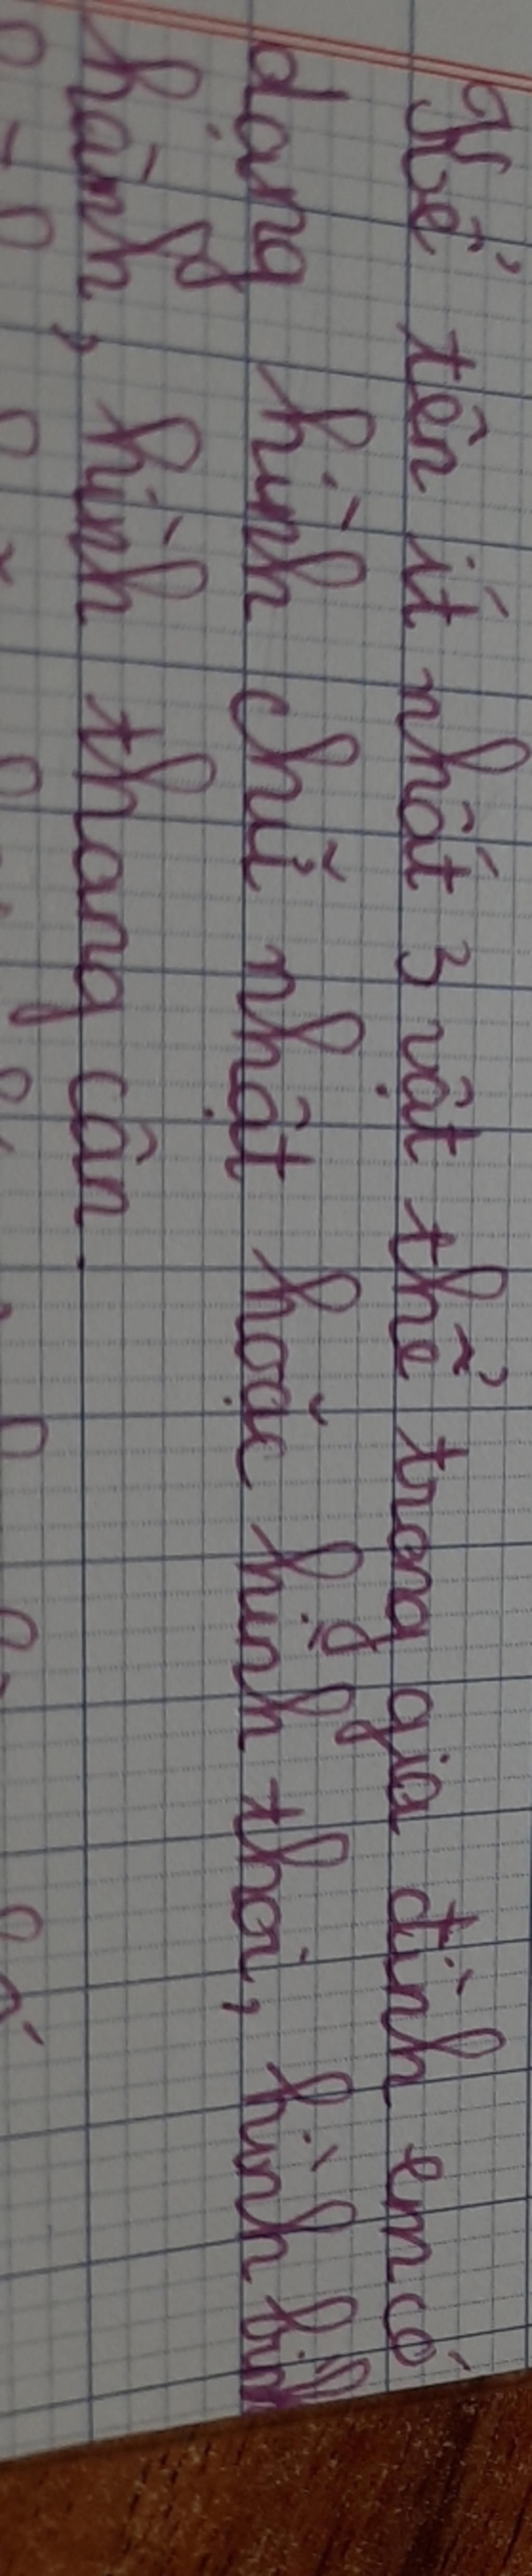 Kể tên ít nhất 3 vật thể trong gia đình em có
dạng hình chữ nhật hoặc hình thoi, hình bình
hành, hình thang cân.